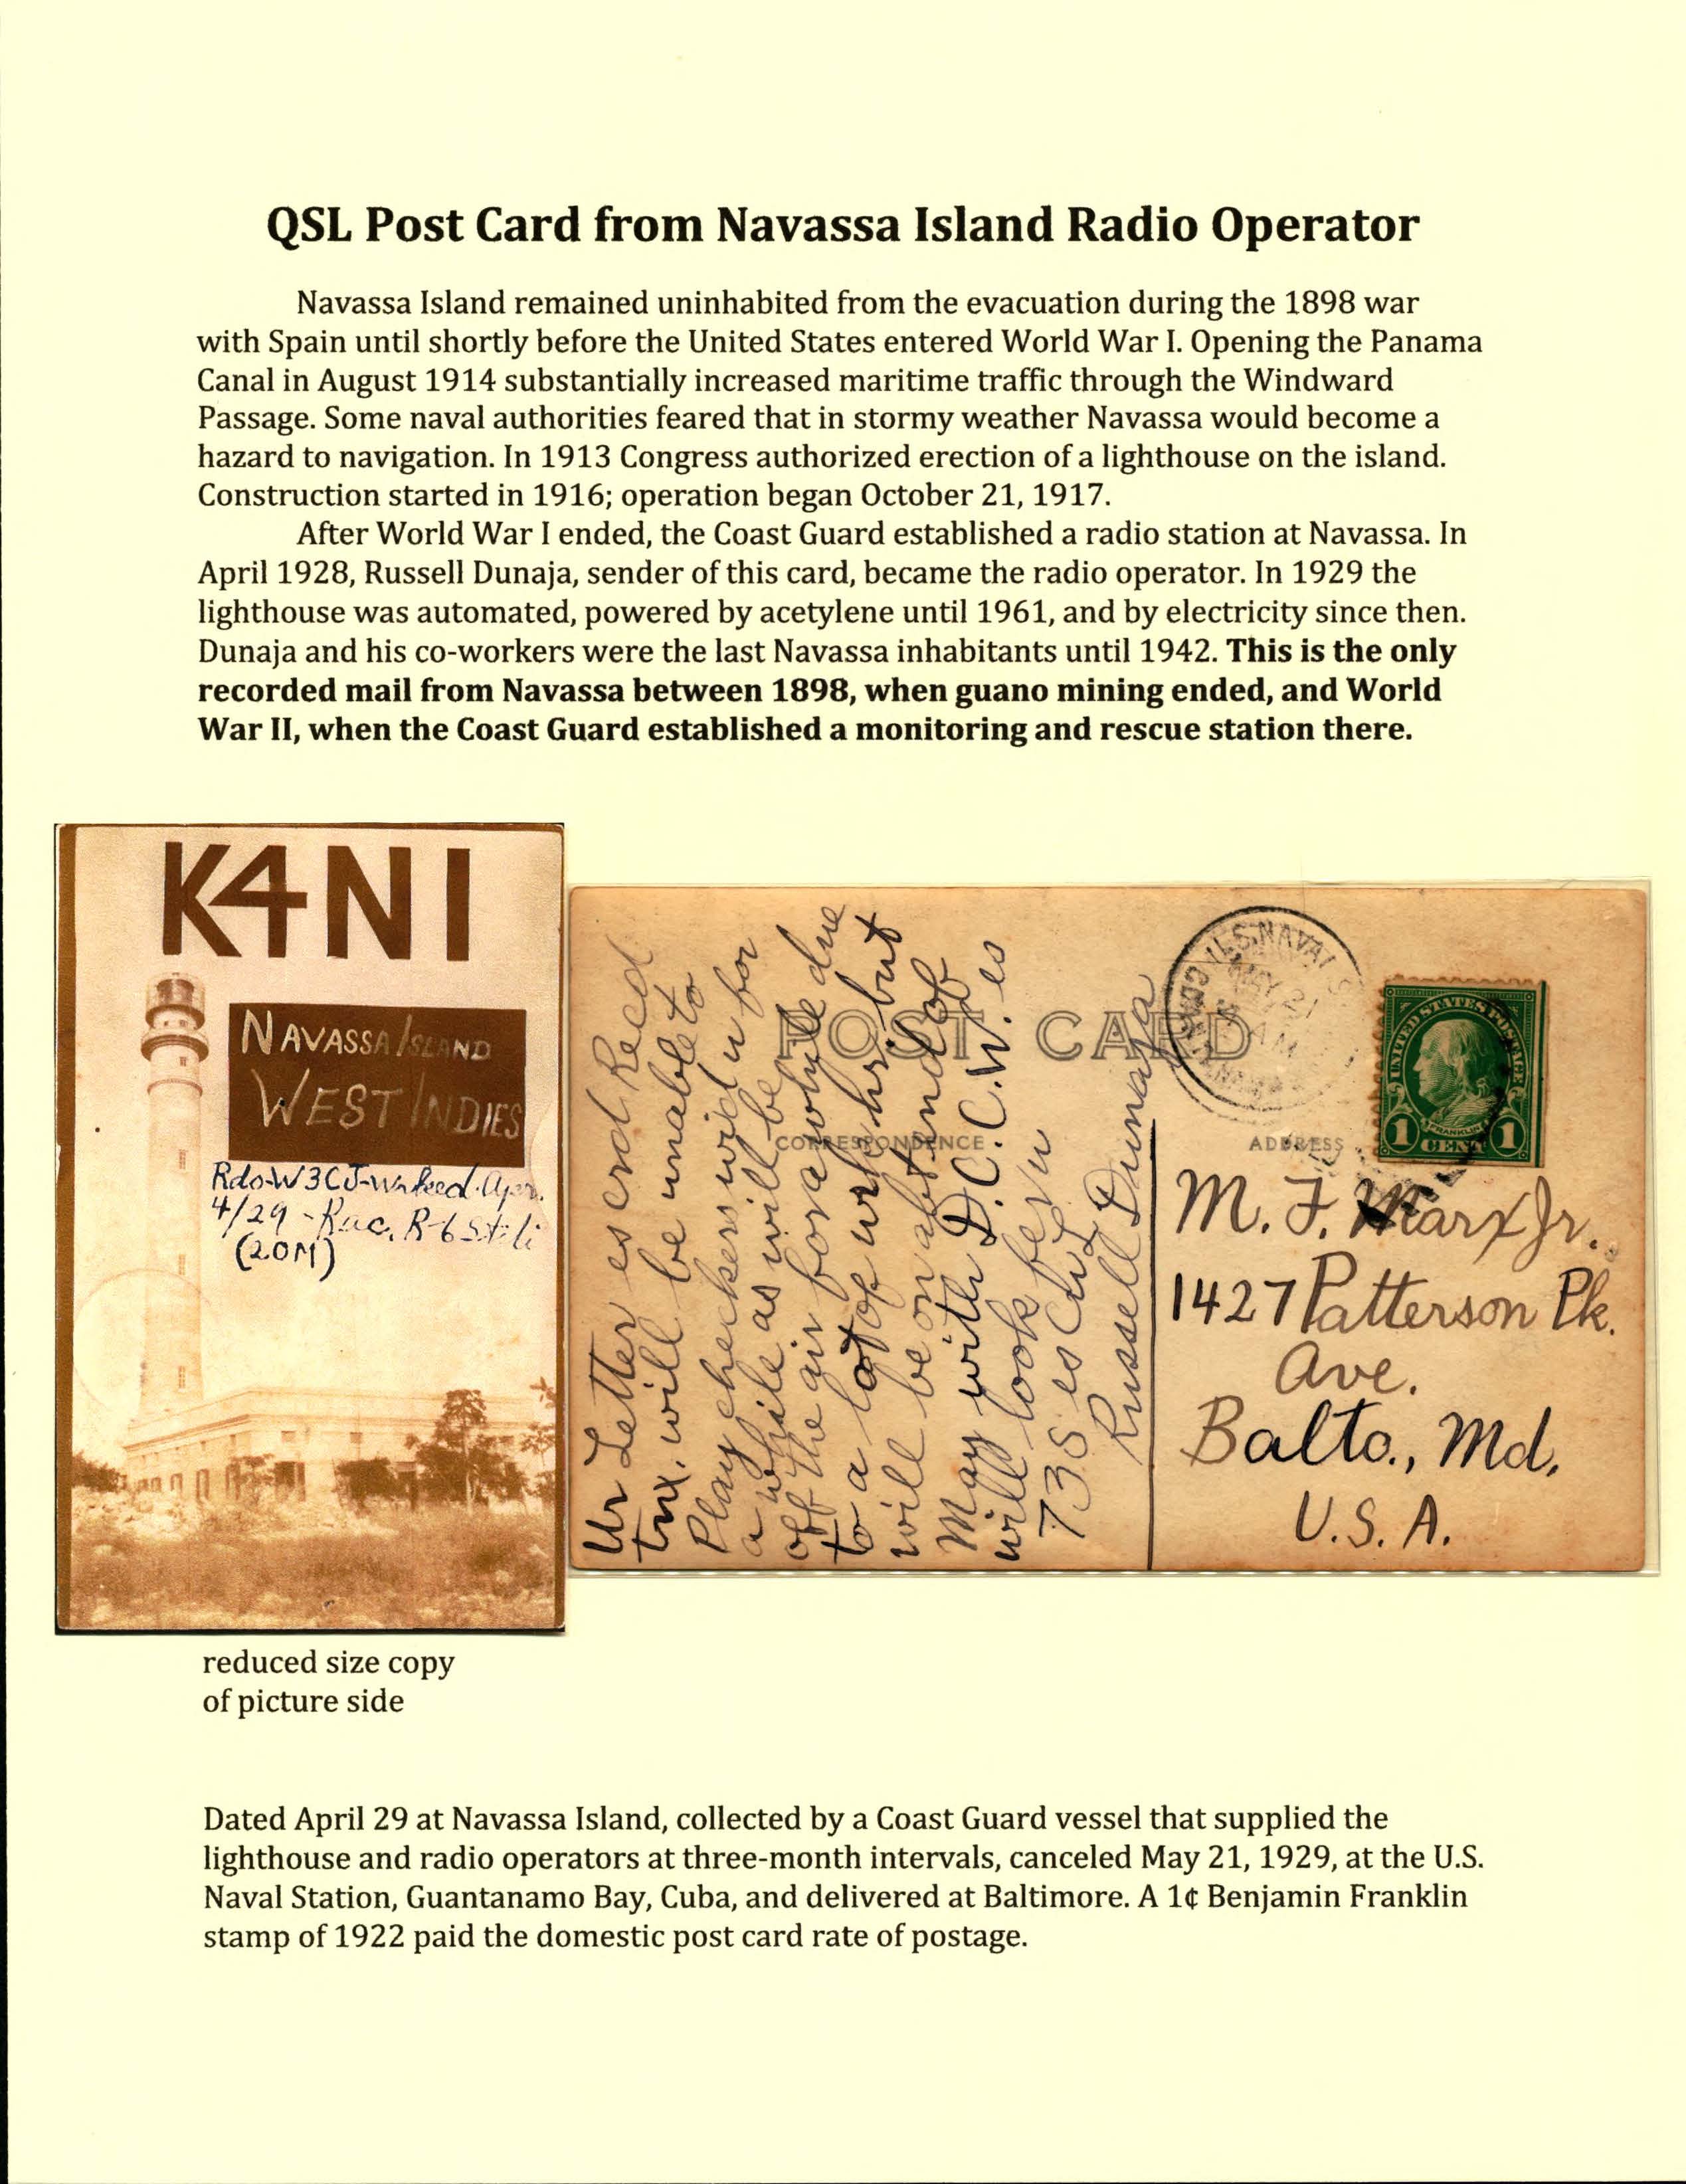 QSL Post Card from Navassa Island Radio Operator
Navassa Island remained uninhabited from the evacuation during the 1898 war
with Spain until shortly before the United States entered World War I. Opening the Panama
Canal in August 1914 substantially increased maritime traffic through the Windward
Passage. Some naval authorities feared that in stormy weather Navassa would become a
hazard to navigation. In 1913 Congress authorized erection of a lighthouse on the island.
Construction started in 1916; operation began October 21, 1917.
After World War I ended, the Coast Guard established a radio station at Navassa. In
April 1928, Russell Dunaja, sender of this card, became the radio operator. In 1929 the
lighthouse was automated, powered by acetylene until 1961, and by electricity since then.
Dunaja and his co-workers were the last Navassa inhabitants until 1942. This is the only
recorded mail from Navassa between 1898, when guano mining ended, and World
War II, when the Coast Guard established a monitoring and rescue station there.
K4NI
NAVASSA ISLAND
WEST INDIES
Rdo-W3CJ-
4/29 - R-6
(20M)
Ur Letter es crd Recd
tnx. will be unable to
Play checkers wid u for
a while as will be
off the air for a while due
to a lot of wrk hr. but
will be on abt end of
May with D.C.C.W. es
will look fer u
73s es
Russell Dunaja
POST CARD
CORRESPONDENCE
ADDRESS
U.S. NAVAL
MAY 21
AM
UNITED STATES POSTAGE
FRANKLIN
1 CENT 1
M. F. Marx Jr.
1427 Patterson Pk.
Ave.
Balto., Md.
U.S.A.
reduced size copy
of picture side
Dated April 29 at Navassa Island, collected by a Coast Guard vessel that supplied the
lighthouse and radio operators at three-month intervals, canceled May 21, 1929, at the U.S.
Naval Station, Guantanamo Bay, Cuba, and delivered at Baltimore. A 1¢ Benjamin Franklin
stamp of 1922 paid the domestic post card rate of postage.